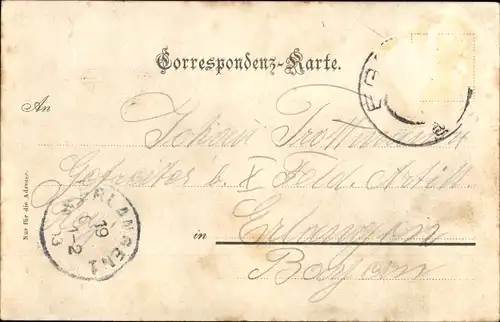 Correspondenz-Karte.
An
Johann
Gefreiter b. X Feld. Artill
in Erlangen
Bayern
Nur für die Adresse.
ERLANGEN 1
19
1-2